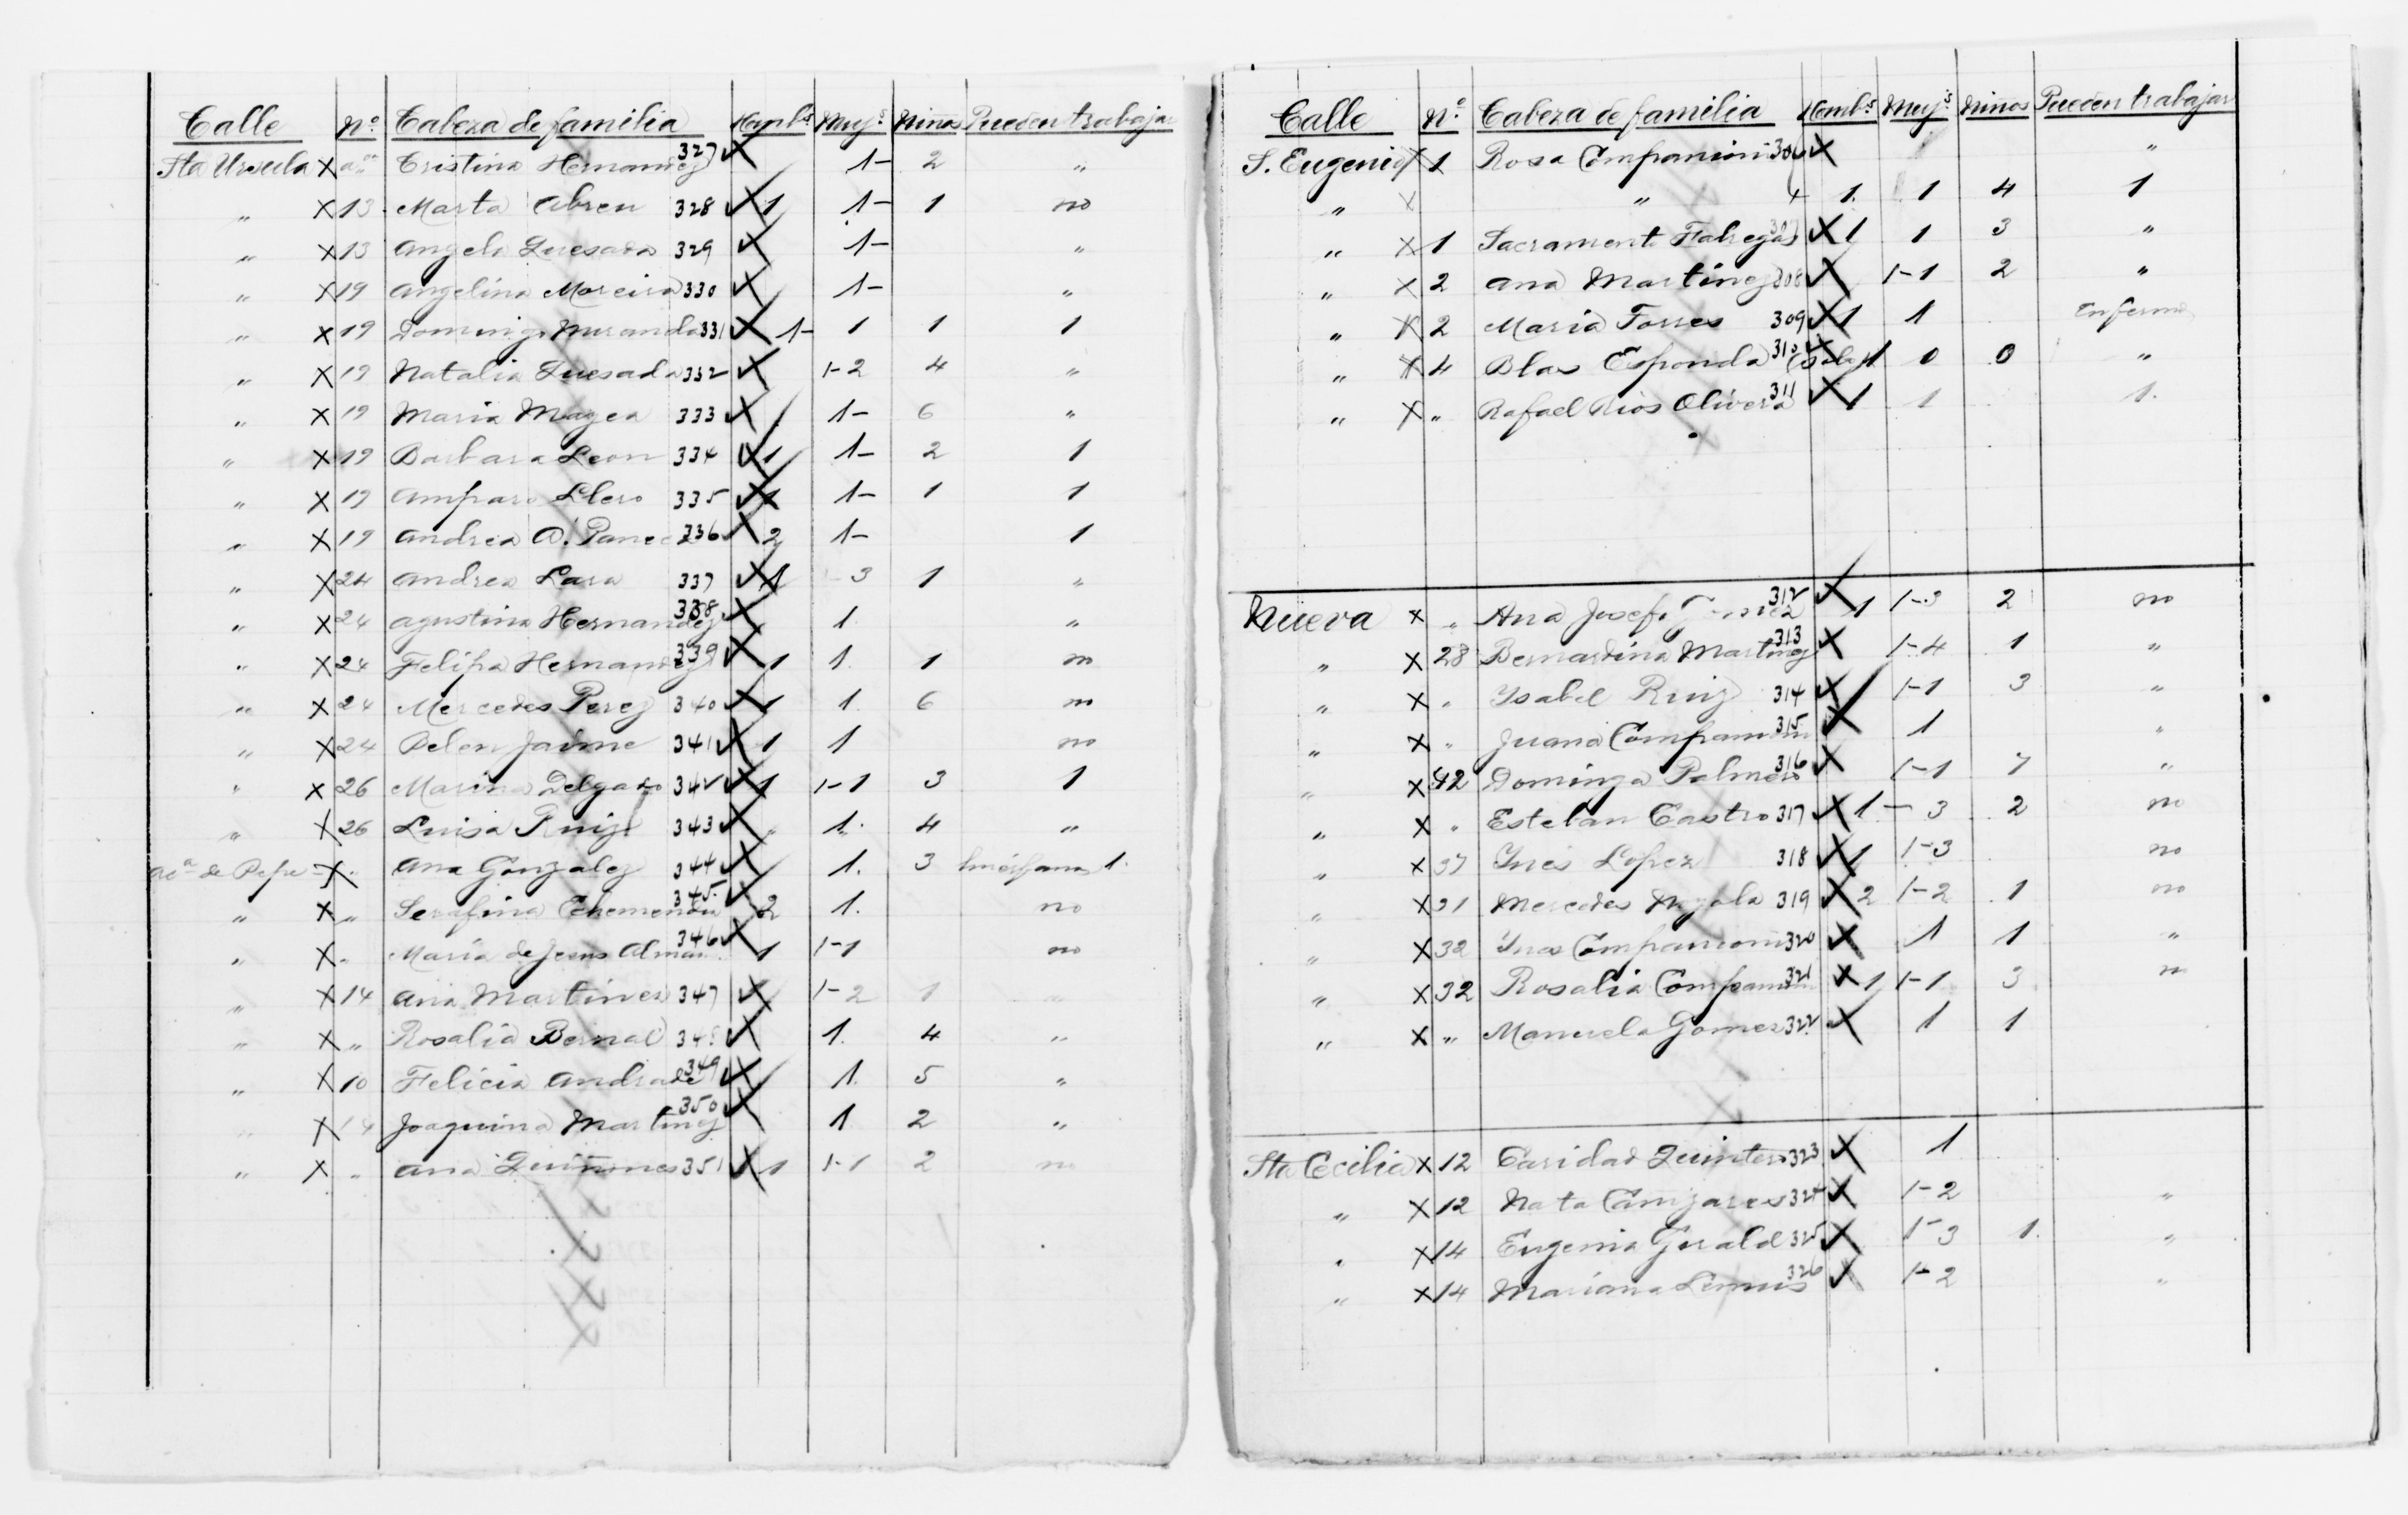 Calle Nº Cabeza de familia Homb.s Muj.s Niños Pueden trabajar
Sta Ursula X Cristina Hernandez 327 1- 2 "
" X 13 Marta Abreu 328 1 1- 1 no
" X 13 Angela Quesada 329 1- "
" X 19 Angelina Moreira 330 1- "
" X 19 Domingo Miranda 331 1- 1 1 1
" X 19 Natalia Quesada 332 1-2 4 "
" X 19 Maria 333 1- 6 "
" X 19 Barbara Leon 334 1 1- 2 1
" X 19 Amparo Llero 335 1 1- 1 1
" X 19 Andrea A. 336 2 1- 1
" X 24 Andrea Lara 337 1 3 1 "
" X 24 Agustina Hernandez 338 1. "
" X 24 Felipa Hernandez 339 1 1. 1 no
" X 24 Mercedes Perez 340 1 1. 6 no
" X 24 Belen Jaime 341 1 1 no
" X 26 Marina Delgado 342 1 1-1 3 1
" X 26 Luisa Ruiz 343 " 1. 4 "
de Pepe X " Ana Gonzalez 344 1. 3 huérfanos 1.
" X " Serafina Echemendia 345 2 1. no
" X " Maria de Jesus 346 1 1-1 no
" X 14 Ana Martinez 347 1-2 1 "
" X " Rosalia Bernal 348 1. 4 "
" X 10 Felicia Andrade 349 1. 5 "
" X 14 Joaquina Martinez 350 1 2 "
" X " Ana Quiñones 351 1 1-1 2 no
Calle Nº Cabeza de familia Homb.s Muj.s Niños Pueden trabajar
S. Eugenio X 1 Rosa Companioni 306 "
" X " 1. 1 4 1
" X 1 Sacramento Fabregas 307 1 1 3 "
" X 2 Ana Martinez 308 1-1 2 "
" X 2 Maria Torres 309 1 1 Enfermo
" X 4 Blas Esponda 310 (solo) 1 0 0 "
" X " Rafael Rios Olivera 311 1 1 1.
Nueva X " Ana Josefa 312 1 1-3 2 no
" X 28 Bernardina Martinez 313 1-4 1 "
" X " Ysabel Ruiz 314 1-1 3 "
" X " Juana Companioni 315 1 "
" X 42 Dominga Palmero 316 1-1 7 "
" X " Esteban Castro 317 1- 3 2 no
" X 37 Ynes Lopez 318 1 1-3 no
" X 31 Mercedes 319 2 1-2 1 no
" X 32 Ynes Companioni 320 1 1 "
" X 32 Rosalia Companioni 321 1 1-1 3 no
" X " Manuela Gomez 322 1 1
Sta Cecilia X 12 Caridad Quintero 323 1
" X 12 Nata Cañizares 324 1-2 "
" X 14 Eugenia Girald 325 1-3 1. "
" X 14 Mariana Lemus 326 1-2 "